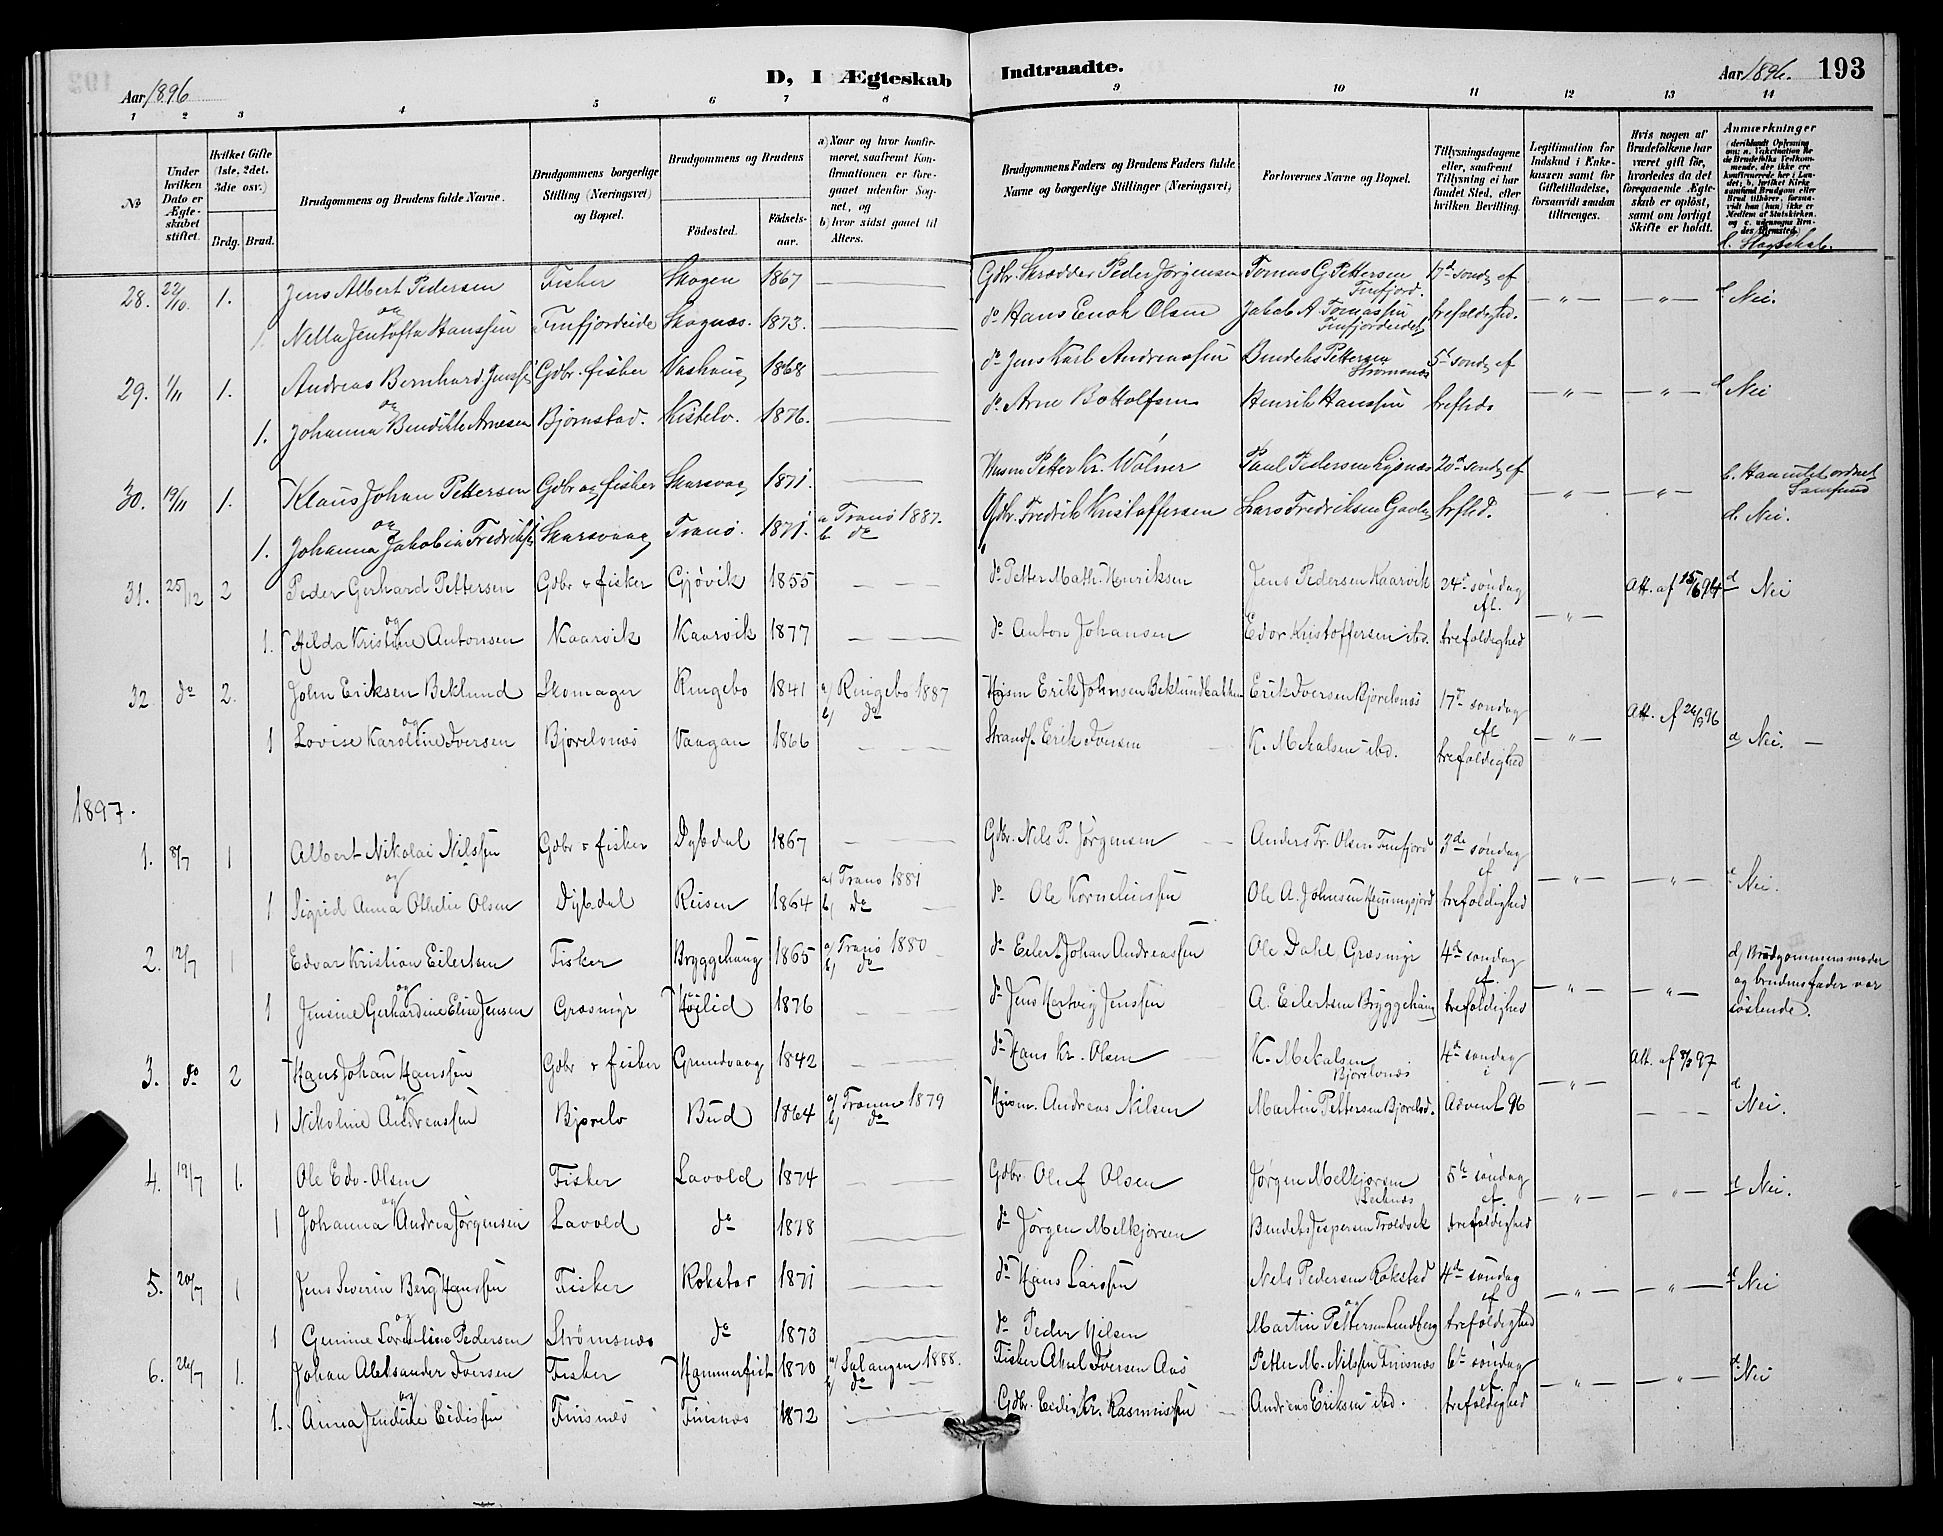 Aar 1896
D, I Ægteskab Indtraadte.
Aar 1896. 193
1 2 3 4 5 6 7 8 9 10 11 12 13 14
No
Under hvilken Dato er Ægteskabet stiftet.
Hvilket Gifte (1ste, 2det, 3die osv.)
Brdg. Brud.
Brudgommens og Brudens fulde Navne.
Brudgommens borgerlige Stilling (Næringsvei) og Bopæl.
Brudgommens og Brudens
Fødested. Fødselsaar.
a) Naar og hvor konfirmeret, saafremt Konfirmationen er foregaaet udenfor Sognet, og
b) hvor sidst gaaet til Alters.
Brudgommens Faders og Brudens Faders fulde Navne og borgerlige Stillinger (Næringsvei).
Forlovernes Navne og Bopæl.
Tillysningsdagene eller, saafremt Tillysning ei har fundet Sted, efter hvilken Bevilling.
Legitimation for Indskud i Enkekassen samt for Giftetilladelse, forsaavidt saadan tiltrænges.
Hvis nogen af Brudefolkene har været gift før, hvorledes da det foregaaende Ægteskab er opløst, samt om lovligt Skifte er holdt.
Anmærkninger
d. Slægtskab.
28. 22/10. 1. Jens Albert Pedersen Fisker Skogen 1867 Gdbr. Skrædder Peder Jørgensen Tomas G Pettersen Finfjord. 17d sondg ef — " — — " — d. Nei.
og
Nella Jentofta Hanssen Finfjordeide Skognæs. 1873. do Hans Enok Olsen Jakob A. Tomassen Finfjordeidet trefoldighd.
29. 1/11 1. Andreas Bernhard Jenssen Gdbr. fisker Vashaug 1868 do Jens Karl Andreassen Bendiks Pettersen Strømsnæs 5t sondg ef — " — — " — d. Nei
og
1. Johanna Bendikte Arnesen Bjørnstad. Kistelv. 1876. do Arne Bottolfsen Henrik Hanssen trefhd.
30. 19/11 1. Klaus Johan Pettersen Gdbr og fisker Skarsvaag 1871. Husm Petter Kr. Wolner Paul Pedersen Lysnæs 20d sondg ef — " — — " — b. Samfund
og
1. Johanna Jakobina Fredriksen Skarsvaag Tranø. 1871. a Tranø 1887. b do Gdbr. Fredrik Kristoffersen Lars Fredriksen trfhd. d. Nei.
31. 25/12 2 Peder Gerhard Pettersen Gdbr & fisker Gjøvik 1855 — — do Petter Math. Henriksen Jens Pedersen Kaarvik 24d søndag eft. — " — Att. af 15/6 94 d Nei
og
1. Hilda Kristine Antonsen Kaarvik Kaarvik 1877 — — do Anton Johansen Edor Kristoffersen ibd. trefoldighed
32 do 2. John Eriksen Beklund Skomager Ringebo 1841 a/ Ringebo 1887 b/ do Husm Erik Johnsen Beklund Erik Iversen Bjorelvnæs 17de søndag eft — " — Att. af 26/9 96
og
1 Lovise Karoline Iversen Bjorelvnæs Vaagan 1866 — — Strands. Erik Iversen K. Mekalsen ibd. trefoldighed d Nei. —
1897.
1. 8/7 1 Albert Nikolai Nilssen Gdbr & fisker Dybdal 1867 Gdbr. Nels P. Jørgensen Anders Fr. Olsen Finfjord 3de søndag ef — " — — " — d Nei.
og
1 Sigrid Anna Othelie Olsen Dybdal Reisen 1864 a/ Tranø 1881 b/ do do Ole Kornelinssen Ole A. Johnsen trefoldighed
2. 12/7 1 Edvar Kristian Eilertsen Fisker Bryggehaug 1865 a/ Tranø 1880 b/ do do Eilert Johan Andreassen Ole Dahl Græsmyr 4de søndag ef. — " — — " — d/ Brudgommens moder og brudens fader var søskende.
og
1 Jensine Gerhardine Elise Jensen Græsmyr Højlid 1876 — — do Jens Hartvig Jenssen A. Eilertsen Bryggehaug trefoldighed
3. do 2 Hans Johan Hanssen Gdbr & fisker Grundvaag 1842 do Hans Kr. Olsen K. Mekalsen Bjorelvnæs 4de søndag i — " — Att. af 8/3 97 d Nei.
og
1 Nikoline Andreassen Bjorelv Bud 1864 a/ 1879 b/ do Husm. Andreas Nilsen Martin Pettersen Bjorelvd. Advent 96
4. 19/7 1. Ole Edv. Olsen Fisker Lavold 1874 Gdbr Oluf Olsen Jørgen Melkjorsen Leiknæs 5te søndag ef. — " — — " — d Nei.
og
1 Johanna Andrea Jørgensen Lavold do 1878 do Jørgen Melkjorsen Bendiks Jespersen Troldvik trefoldighed
5. 20/7 1 Jens Severin Berg Hanssen Fisker Rokstad 1871 do Hans Larssen Nels Pedersen Rokstad 4de søndag ef — " — — " — d Nei
og
1 Gunine Lorentine Pedersen Strømsnæs do 1873 do Peder Nilsen Martin Pettersen Lundberg trefoldighed
6. 26/7 1. Johan Aleksander Iversen Fisker Hammerfest 1870 a/ Salangen 1888. b/ do Fisker Aksel Iversen Aas Petter M. Nilssen Finsnæs 6te søndag ef — " — — " — d. Nei
og
1. Anna Jensine Eidissen Finsnæs Finsnæs 1872 Gdbr. Eedis Kr. Rasmussen Andreas Eriksen ibd. trefoldighed